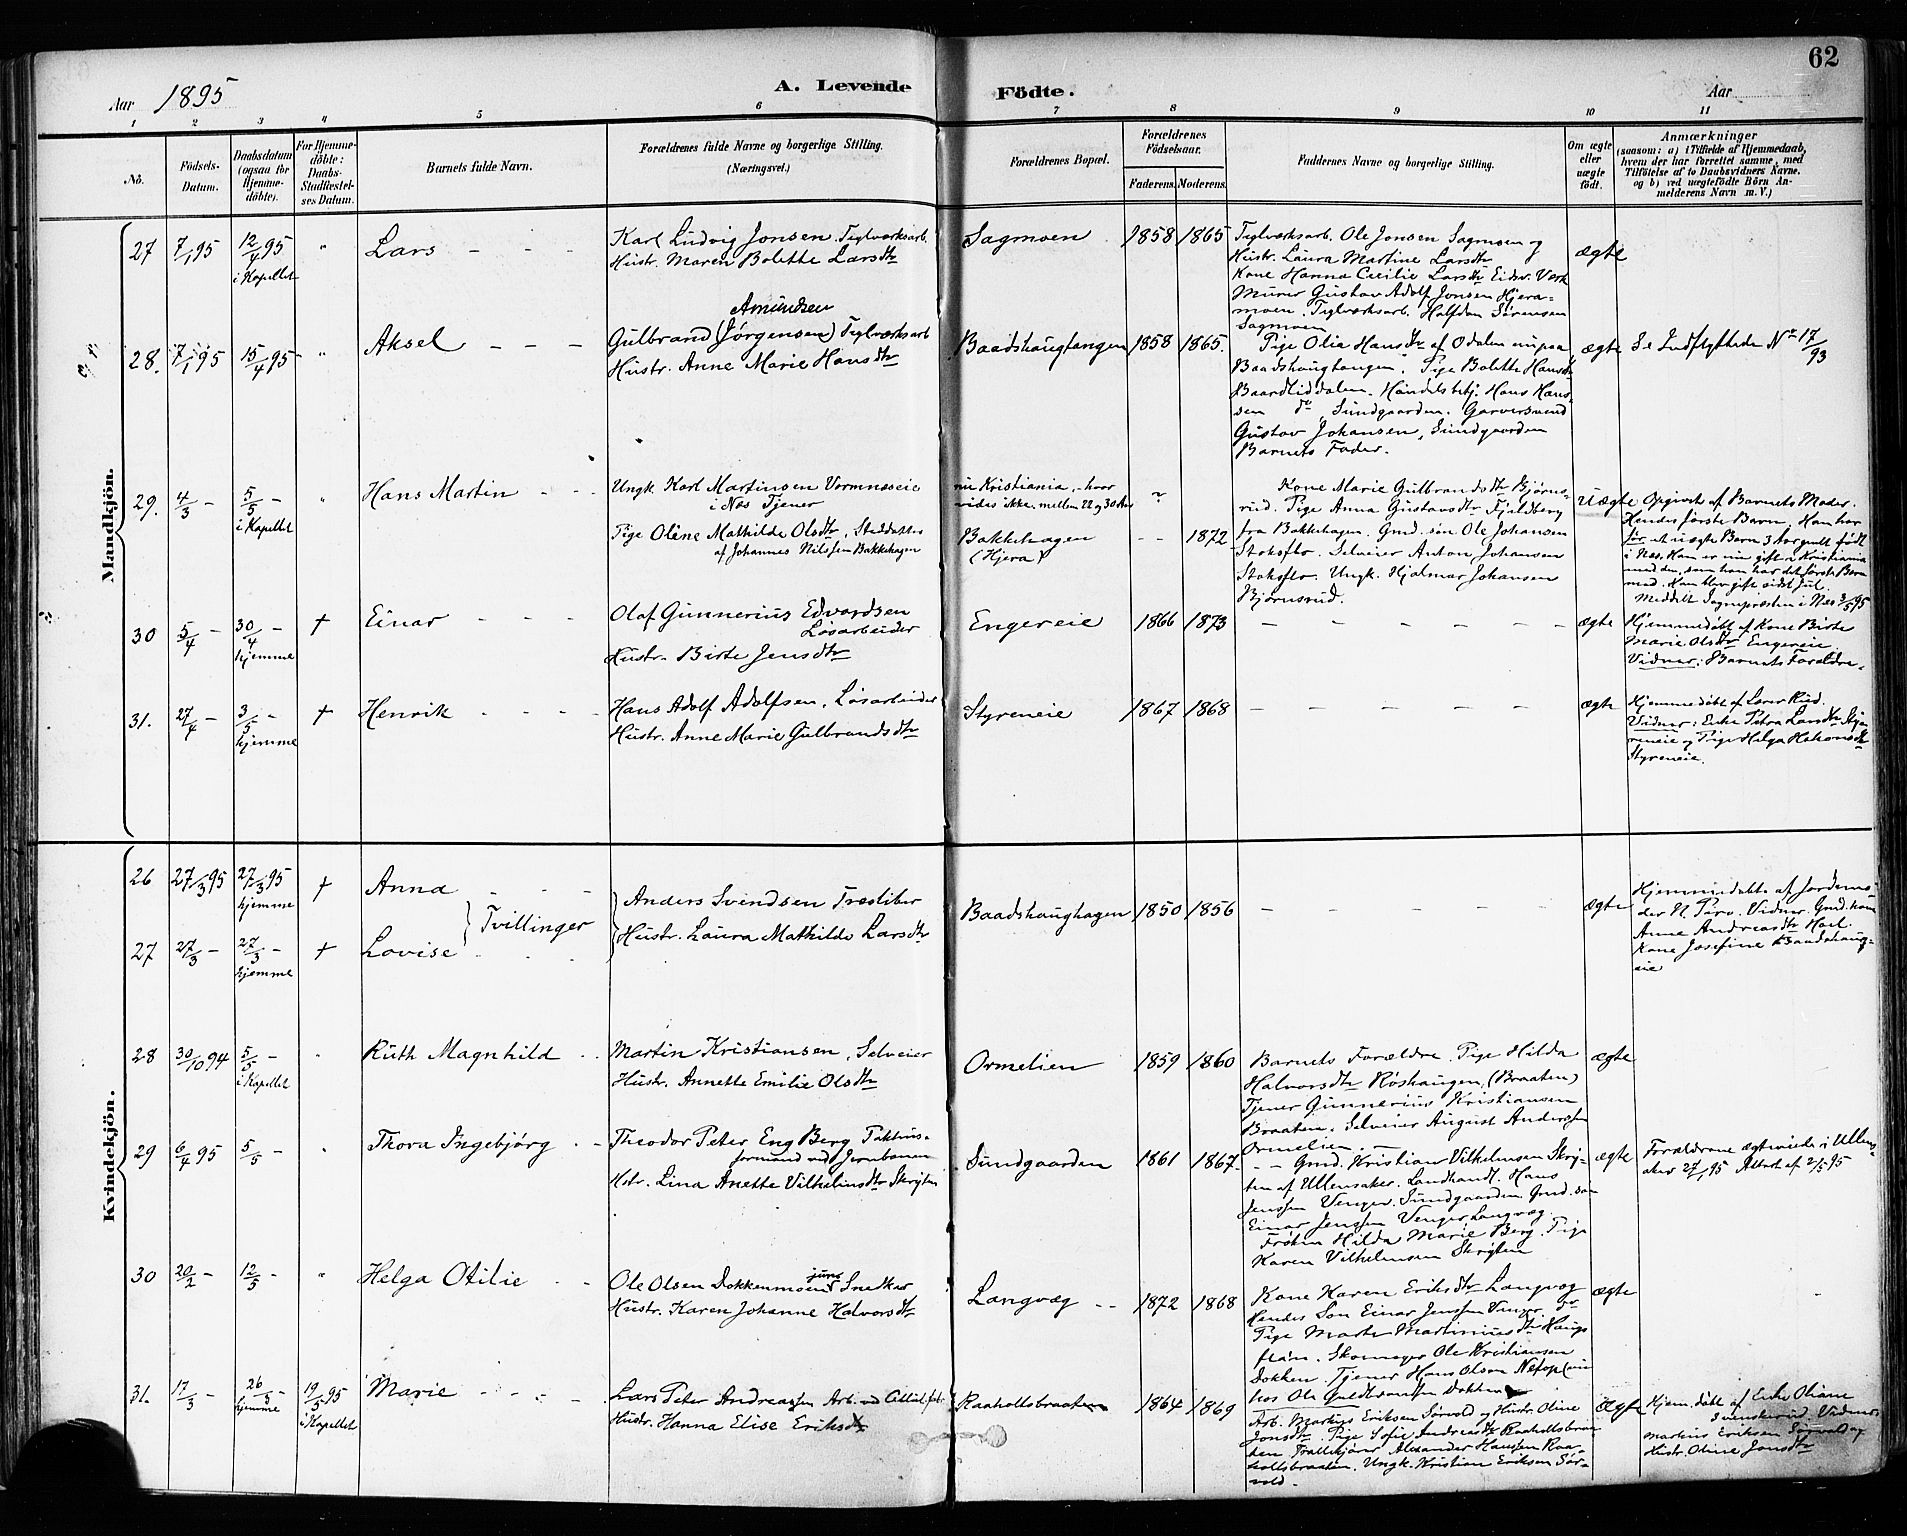 62
Aar 1895 A. Levende Födte. Aar
1 2 3 4 5 6 7 8 9 10 11
No.
Födsels-Datum.
Daabsdatum (ogsaa for Hjemmedöbte).
For Hjemmedöbte: Daabs-Stadfæstelses Datum.
Barnets fulde Navn.
Forældrenes fulde Navne og borgerlige Stilling.
(Næringsvei.)
Forældrenes Bopæl.
Forældrenes Födselsaar.
Faderens. Moderens.
Faddernes Navne og borgerlige Stilling.
Om ægte eller uægte födt.
Anmærkninger
(saasom: a) i Tilfælde af Hjemmedaab, hvem der har forrettet samme, med Tilföielse af to Daabsvidners Navne, og b) ved uægtefödte Börn Anmelderens Navn m. V.)
Mandkjön.
27 7/1 95 12/4 95 i Kapellet " Lars - -
Karl Ludvig Jonsen Teglværksarb.
Hustr. Maren Bolette Larsdtr
Sagmoen 1858 1865
Teglværksarb. Ole Jonsen Sagmoen og
Hustr. Laura Martine Larsdtr
Kone Hanna Cecilie Larsdtr Eidsv. Værk
Murer Gustav Adolf Jonsen Hjera-
moen. Teglværksarb. Halfdan Sørensen
Sagmoen
ægte
28. 7/1 95 15/4 95 - " Aksel - - -
Amundsen
Gulbrand (Jørgensen) Teglværksarb
Hustr. Anne Marie Hansdtr
Baadshaugtangen 1858 1865.
Pige Olia Hansdtr af Odalen nu paa
Baadshaugtangen. Pige Bolette Hansdtr
Baardliddalen. Handelsbetj. Hans Han-
sen do, Sundgaarden. Garversvend
Gustav Johansen, Sundgaarden
Barnets Fader.
ægte Se Indflyttede No 17/93
29. 4/3 - 5/5 - i Kapellet " Hans Martin - -
Ungk. Karl Martinsen Vormnæseie
i Næs Tjener
Pige Oline Mathilde Olsdtr, Steddatter
af Johannes Nilssen Bakkehagen
nu Kristiania, hvor
vides ikke. mellem 22 og 30 Aar
Bakkehagen
(Hjera)
- - 1872
Kone Marie Gulbrandsdtr Bjørns-
rud. Pige Anna Gustavsdtr Fjeldberg
fra Bakkehagen. Gmd. søn Ole Johansen
Stoksflo. Selveier Anton Johansen
Stoksflo. Ungk. Hjalmar Johansen
Bjørnsrud.
Uægte Opgivet af Barnets Moder.
Hendes første Barn. Han har
før et uægte Barn 3 Aar gml. født
i Næs. Han er nu gift i Kristiania
med den, som han har det første Barn
med. Han blev gift sidst Jul.
Meddelt Sognepræsten i Næs 3/5 95
30 5/4 - 30/4 - hjemme + Einar - - -
Olaf Gunnerius Edvardsen
Løsarbeider
Hustr. Birte Jensdtr
Engereie 1866 1873 - - - - -
ægte Hjemmedøbt af Kone Birte
Marie Olsdtr Engereie.
Vidner: Barnets Forældre.
31. 27/4 - 3/5 - hjemme + Henrik - - - -
Hans Adolf Adolfsen, Løsarbeider
Hustr. Anne Marie Gulbrandsdtr
Styreneie 1867 1868 - - - - -
ægte Hjemmedøbt af Lærer Rud.
Vidner: Enke Petra Larsdtr Sty-
reneie og Pige Helga Hakonsdtr
Styreneie.
Kvindekjön.
26 27/3 95 27/3 95 hjemme + Anna - - -
27 27/3 - 27/3 - hjemme + Lovise - - -
Tvillinger
Anders Svendsen Træsliber
Hustr. Laura Mathilde Larsdtr
Baadshaughagen 1850 1856 - - - - -
ægte Hjemmedøbte af Jordemo-
der N. Parv. Vidner. Gmd. kone
Anne Andreasdtr Hoel.
Kone Josefine Baadshaug-
eie
28 30/10 94 5/5 - i Kapellet " Ruth Magnhild - -
Martin Kristiansen, Selveier
Hustr. Annette Emilie Olsdtr
Ormelien 1859 1860
Barnets Forældre. Pige Hilda
Halvorsdtr Røshaugen, (Braaten)
Tjener Gunnerius Kristiansen
Braaten. Selveier August Andersen
Ormelien
ægte
29 6/4 95 5/5 - " Thora Ingebjørg - -
Theodor Peter Eng Berg Pakhus-
formand ved Jernbanen
Hstr. Lina Anette Vilhelmsdtr Skrijten
Sundgaarden 1861 1867.
- - Gmd. Kristian Vilhelmsen Skrij-
ten af Ullensaker. Landhandl. Hans
Jenssen Venger. Sundgaarden. Gmd. søn
Einar Jenssen Venger Langvæg.
Frøken Hilda Marie Berg. Pige
Karen Vilhelmsen Skrijten
ægte Forældrene ægteviede i Ullens-
aker 27/1 95 Attest af 2/5 95
30 20/2 - 12/5 - " Helga Otilie - -
Ole Olsen Dokkenmoen jun. Snedker
Hustr. Karen Johanne Halvorsdtr
Langvæg - - 1872 1868
Kone Karen Eriksdtr Langvæg
Hendes Søn Einar Jenssen Venger. do
Pige Marte Martiniusdtr Haugs-
flan. Skomager Ole Kristiansen
Dokken. Tjener Hans Olsen
hos Ole Dokken
ægte
31. 17/3 - 26/3 - hjemme 19/5 95 i Kapellet Marie - - - -
Lars Peter Andreassen Arb. ved
Hustr. Hanna Elise Eriksdtr
Raaholtsbraaten 1864 1869
Arb. Markus Eriksen Sørvold og Hustr. Oline
Jonsdtr. Pige Sofie Andreasdtr Raaholtsbraa-
ten. Alexander Hansen Raa-
holtsbraaten. Ungk. Kristian Eriksen Sør-
vold.
Ægte Hjem. døbt af Enke Oliane
Svenskerud. Vidner
Markus Eriksen Sørvold og
Hustr. Oline Jonsdtr